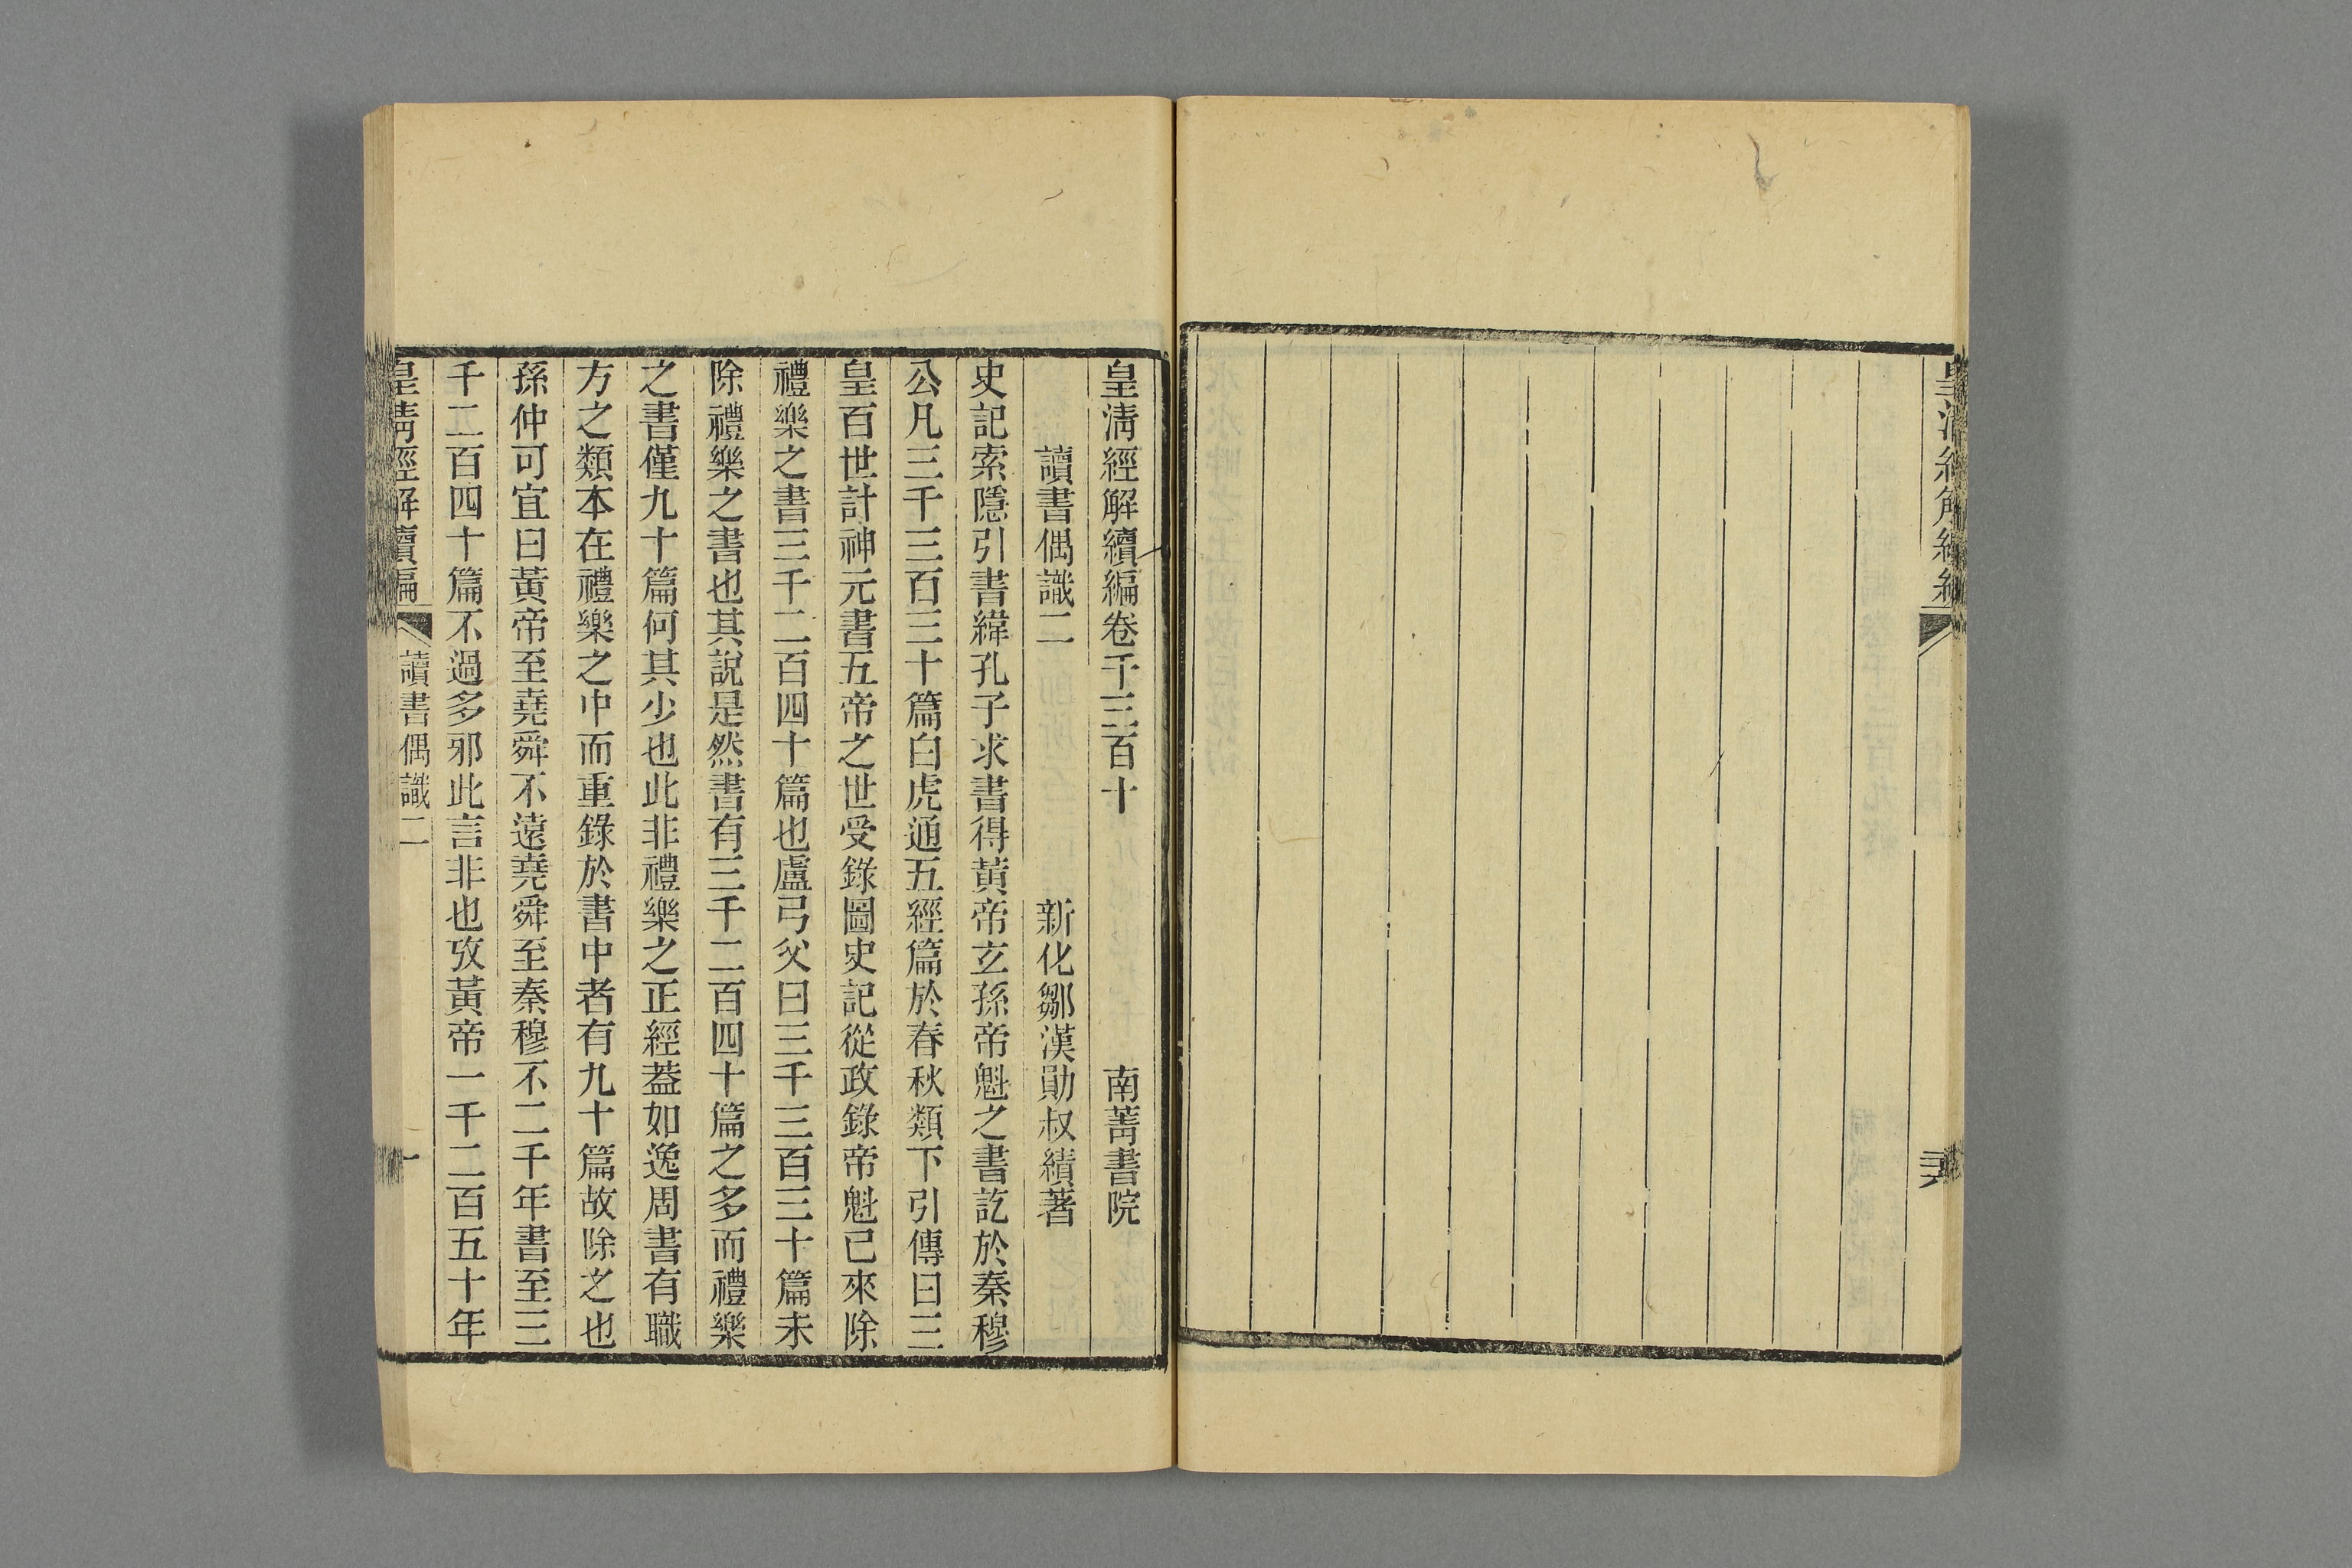 皇清經解續編卷千三百十　南菁書院
讀書偶識二　新化鄒漢勛叔績著
史記索隱引書緯孔子求書得黃帝玄孫帝魁之書訖於秦穆
公凡三千三百三十篇白虎通五經篇於春秋類下引傳曰三
皇百世計神元書五帝之世受錄圖史記從政錄帝魁已來除
禮樂之書三千二百四十篇也盧弓父曰三千三百三十篇未
除禮樂之書也其說是然書有三千二百四十篇之多而禮樂
之書僅九十篇何其少也此非禮樂之正經葢如逸周書有職
方之類本在禮樂之中而重錄於書中者有九十篇故除之也
孫仲可宜曰黃帝至堯舜不遠堯舜至秦穆不二千年書至三
千二百四十篇不過多邪此言非也攷黃帝一千二百五十年
皇清經解續編　讀書偶識二　一